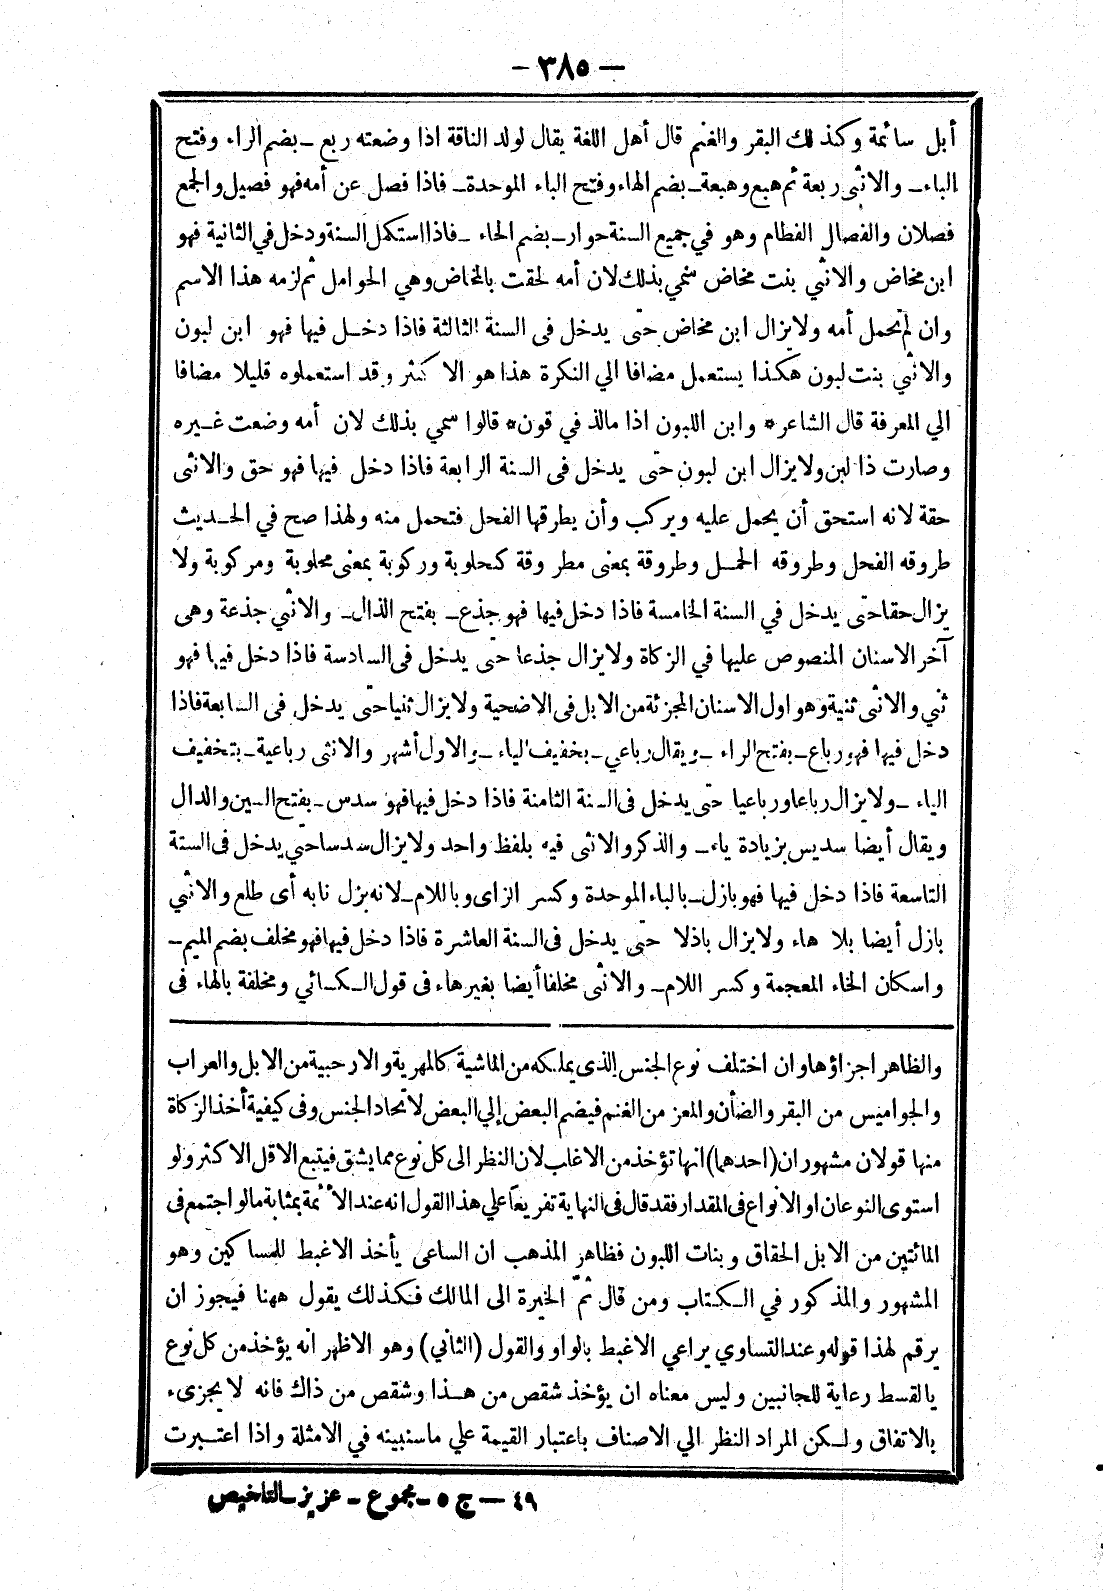 — ٣٨٥ —
أبل سائمة وكذلك البقر والغنم قال أهل اللغة يقال لولد الناقة اذا وضعته ربع ــ بضم الراء وفتح
الباء ــ والانثى ربعة ثم هبع وهبعة ــ بضم الهاء وفتح الباء الموحدة ــ فاذا فصل عن أمه فهو فصيل والجمع
فصلان والفصال الفطام وهو في جميع السنة حوار ــ بضم الحاء ــ فاذا استكمل السنة ودخل في الثانية فهو
ابن مخاض والانثي بنت مخاض سمي بذلك لان أمه لحقت بالمخاض وهي الحوامل ثم لزمه هذا الاسم
وان لم تحمل أمه ولا يزال ابن مخاض حتى يدخل فى السنة الثالثة فاذا دخل فيها فهو ابن لبون
والانثي بنت لبون هكذا يستعمل مضافا الي النكرة هذا هو الاكثر وقد استعملوه قليلا مضافا
الي المعرفة قال الشاعر * وابن اللبون اذا مالذ في قون * قالوا سمي بذلك لان أمه وضعت غيره
وصارت ذا لبن ولا يزال ابن لبون حتى يدخل فى السنة الرابعة فاذا دخل فيها فهو حق والانثى
حقة لانه استحق أن يحمل عليه ويركب وأن يطرقها الفحل فتحمل منه ولهذا صح في الحديث
طروقه الفحل وطروقه الحمل وطروقة بمعنى مطروقة كحلوبة وركوبة بمعنى محلوبة ومركوبة ولا
يزال حقا حتى يدخل في السنة الخامسة فاذا دخل فيها فهو جذع ــ بفتح الذال ــ والانثي جذعة وهى
آخر الاسنان المنصوص عليها في الزكاة ولا يزال جذعا حتى يدخل فى السادسة فاذا دخل فيها فهو
ثني والانثى ثنية وهو اول الاسنان المجزئة من الابل فى الاضحية ولا يزال ثنيا حتى يدخل فى السابعة فاذا
دخل فيها فهو رباع ــ بفتح الراء ــ ويقال رباعي ــ بخفيف الياء ــ والاول أشهر والانثى رباعية ــ بتخفيف
الياء ــ ولا يزال رباعا ورباعيا حتى يدخل فى السنة الثامنة فاذا دخل فيها فهو سدس ــ بفتح السين والدال
ويقال أيضا سديس بزيادة ياء ــ والذكر والانثى فيه بلفظ واحد ولا يزال سدسا حتى يدخل فى السنة
التاسعة فاذا دخل فيها فهو بازل ــ بالباء الموحدة وكسر الزاى وباللام ــ لانه بزل نابه أى طلع والانثي
بازل أيضا بلا هاء ولا يزال باذلا حتى يدخل فى السنة العاشرة فاذا دخل فيها فهو مخلف بضم الميم ــ
واسكان الخاء المعجمة وكسر اللام ــ والانثى مخلفا أيضا بغير هاء فى قول الكسائي ومخلفة بالهاء فى
والظاهر اجزاؤها وان اختلف نوع الجنس الذى يملكه من الماشية كالمهرية والارحبية من الابل والعراب
والجواميس من البقر والضأن والمعز من الغنم فيضم البعض إلي البعض لاتحاد الجنس وفى كيفية أخذ الزكاة
منها قولان مشهوران (احدهما) انها تؤخذ من الاغلب لان النظر الى كل نوع مما يشق فيتبع الاقل الاكثر ولو
استوى النوعان او الانواع فى المقدار فقد قال فى النهاية تفريعاً علي هذا القول انه عند الأئمة بمثابة مالو اجتمع فى
المائتين من الابل الحقاق وبنات اللبون فظاهر المذهب ان الساعى يأخذ الاغبط للمساكين وهو
المشهور والمذكور في الكتاب ومن قال ثمّ الخيرة الى المالك فكذلك يقول ههنا فيجوز ان
يرقم لهذا قوله وعند التساوي يراعي الاغبط بالواو والقول (الثاني) وهو الاظهر انه يؤخذ من كل نوع
بالقسط رعاية للجانبين وليس معناه ان يؤخذ شقص من هذا وشقص من ذاك فانه لا يجزىء
بالاتفاق ولكن المراد النظر الي الاصناف باعتبار القيمة علي ماسنبينه في الامثلة واذا اعتبرت
٤٩ — ج ٥ ــ مجموع ــ عزيز ــ التلخيص